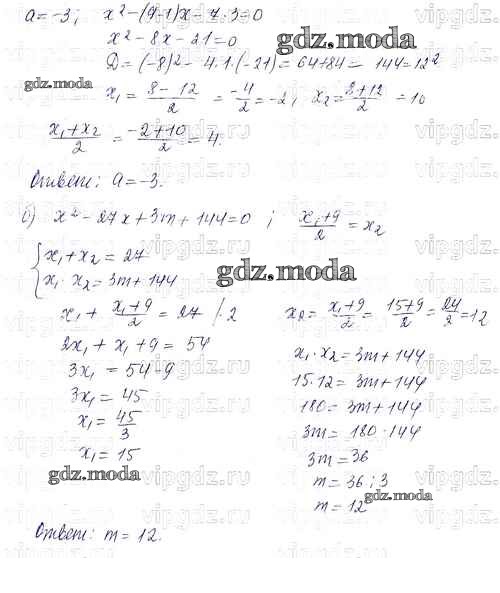 a = -3; x² - (9-1)x - 7·3 = 0
x² - 8x - 21 = 0
D = (-8)² - 4·1·(-21) = 64+84 = 144 = 12²
gdz.moda
x₁ = (8-12)/2 = -4/2 = -2; x₂ = (8+12)/2 = 10
(x₁+x₂)/2 = (-2+10)/2 = 4.
Ответ: a = -3.
б) x² - 27x + 3m + 144 = 0; (x₁+9)/2 = x₂
{ x₁ + x₂ = 27
x₁ · x₂ = 3m + 144
gdz.moda
x₁ + (x₁+9)/2 = 27 | · 2
2x₁ + x₁ + 9 = 54
3x₁ = 54 - 9
3x₁ = 45
x₁ = 45/3
x₁ = 15
gdz.moda
x₂ = (x₁+9)/2 = (15+9)/2 = 24/2 = 12
x₁ · x₂ = 3m + 144
15·12 = 3m + 144
180 = 3m + 144
3m = 180 · 144
3m = 36
m = 36 : 3
gdz.moda
m = 12
Ответ: m = 12.
vipgdz.ru